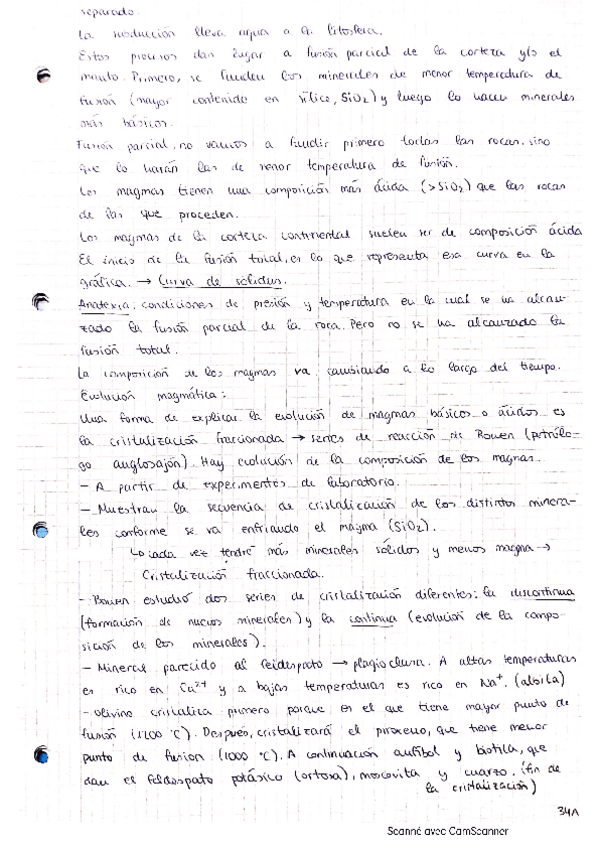 separado.
La subducción lleva agua a la litosfera.
Estos procesos dan lugar a fusión parcial de la corteza y/o el
manto. Primero, se funden los minerales de menor temperatura de
fusión (mayor contenido en sílice, SiO2) y luego lo hacen minerales
más básicos.
Fusión parcial, no vamos a fundir primero todas las rocas, sino
que lo harán las de menor temperatura de fusión.
Los magmas tienen una composición más ácida (>SiO2) que las rocas
de las que proceden.
Los magmas de la corteza continental suelen ser de composición ácida
El inicio de la fusión total, es lo que representa esa curva en la
gráfica. → Curva de sólidus.
Anatexia: condiciones de presión y temperatura en la cual se ha alcan-
zado la fusión parcial de la roca. Pero no se ha alcanzado la
fusión total.
La composición de los magmas va cambiando a lo largo del tiempo.
Evolución magmática:
Una forma de explicar la evolución de magmas básicos o ácidos es
la cristalización fraccionada → series de reacción de Bowen (petrólo-
go anglosajón). Hay evolución de la composición de los magmas.
- A partir de experimentos de laboratorio.
- Muestran la secuencia de cristalización de los distintos minera-
les conforme se va enfriando el magma (SiO2).
↳ cada vez tendré más minerales sólidos y menos magma →
Cristalización fraccionada.
- Bowen estudió dos series de cristalización diferentes: la discontinua
(formación de nuevos minerales) y la continua (evolución de la compo-
sición de los minerales).
- Mineral parecido al feldespato → plagioclasa. A altas temperaturas
es rico en Ca2+ y a bajas temperaturas es rico en Na+. (albita)
- Olivino cristaliza primero porque es el que tiene mayor punto de
fusión (1200 °C). Después, cristalizará el piroxeno, que tiene menor
punto de fusión (1000 °C). A continuación anfíbol y biotita, que
dan el feldespato potásico (ortosa), moscovita y cuarzo. (fin de
la cristalización)
34A
Scanné avec CamScanner